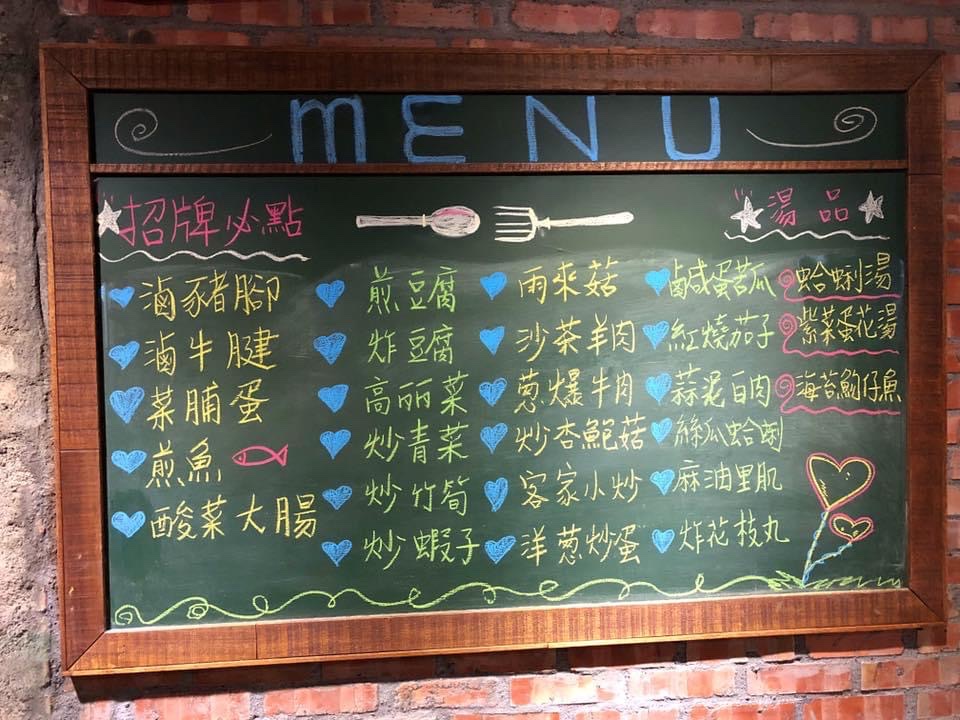 MENU
招牌必點
滷豬腳
滷牛腱
菜脯蛋
煎魚
酸菜大腸
煎豆腐
炸豆腐
高丽菜
炒青菜
炒竹筍
炒蝦子
雨來菇
沙茶羊肉
蔥爆牛肉
炒杏鮑菇
客家小炒
洋蔥炒蛋
鹹蛋苦瓜
紅燒茄子
蒜泥白肉
絲瓜蛤蜊
麻油里肌
炸花枝丸
湯品
蛤蜊湯
紫菜蛋花湯
海苔魩仔魚